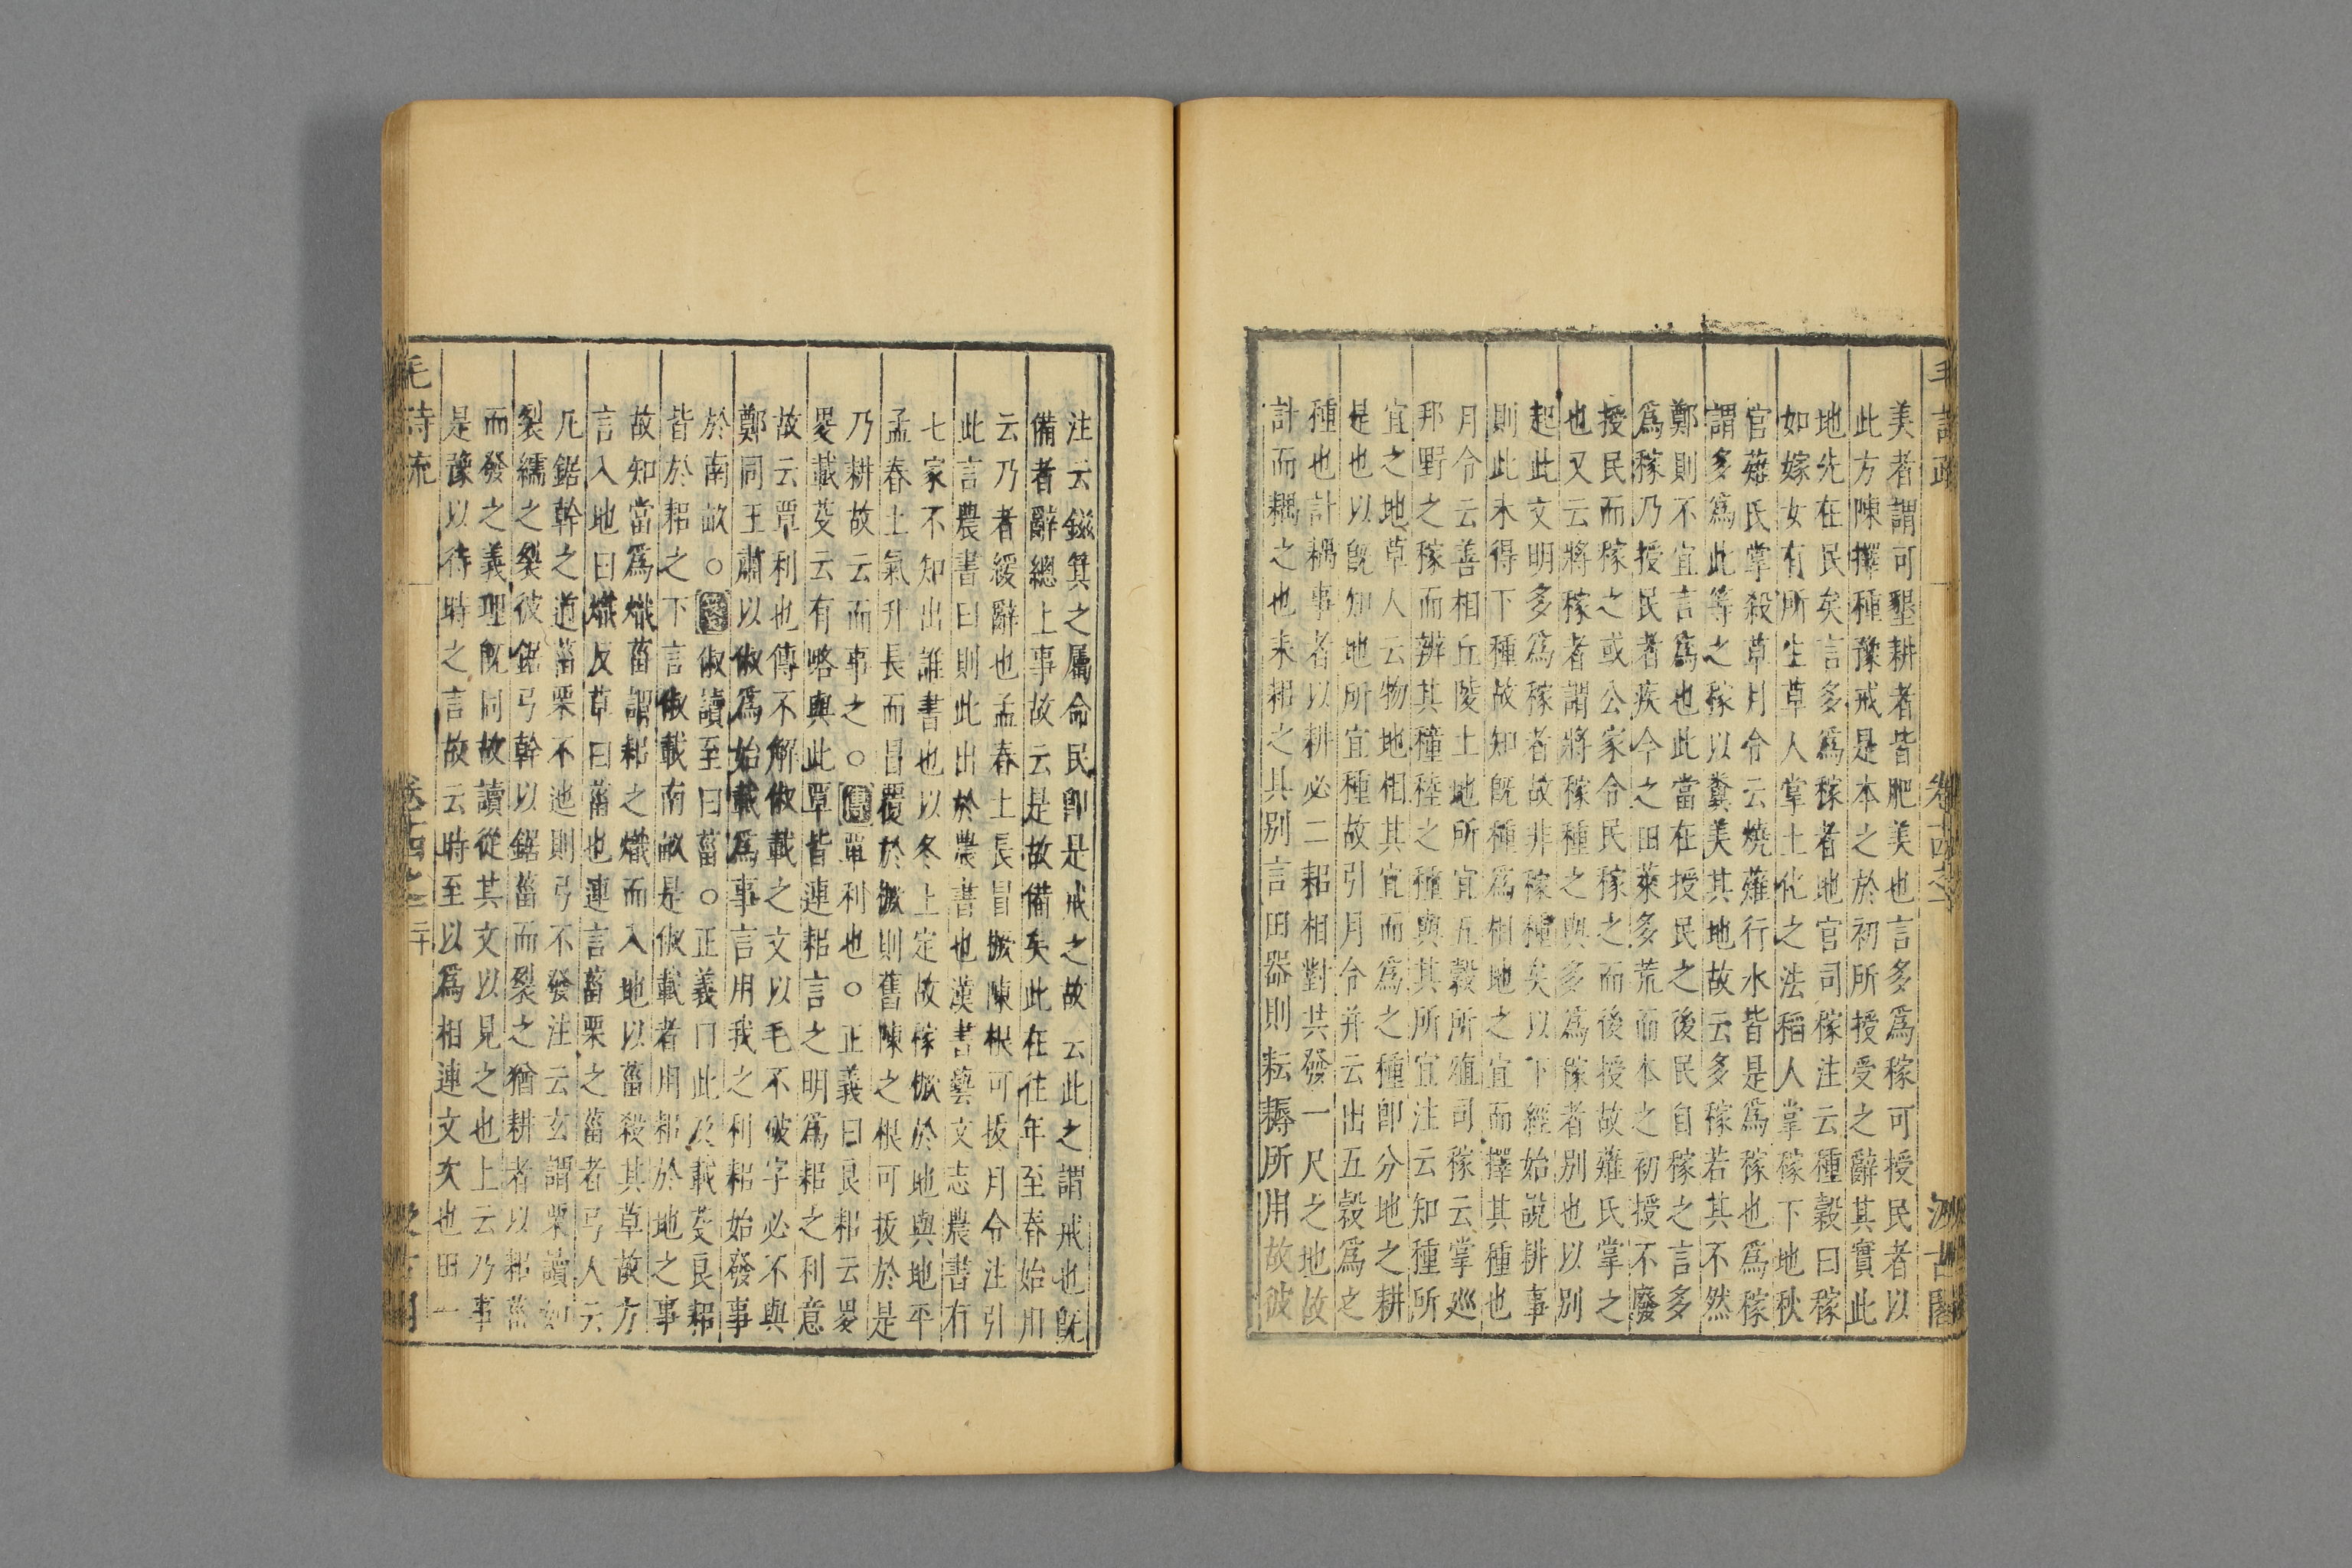 美者謂可墾耕者皆肥美也言多爲稼可授民者以
此方陳擇種豫戒是本之於初所授受之辭其實此
地先在民矣言多爲稼者地官司稼注云種穀曰稼
如嫁女有所生草人掌土化之法稻人掌稼下地秋
官薙氏掌殺草月令云燒薙行水皆是爲稼也爲稼
謂多爲此等之稼以糞美其地故云多稼若其不然
鄭則不宜言爲也此當在授民之後民自稼之言多
爲稼乃授民者疾今之田萊多荒而本之初授不廢
授民而稼之或公家令民稼之而後授故薙氏掌之
也又云將稼者謂將稼種之與多爲稼者別也以別
起此文明多爲稼者故非稼種矣以下經始說耕事
則此未得下種故知旣種爲相地之宜而擇其種也
月令云善相丘陵土地所宜五穀所殖司稼云掌巡
邦野之稼而辨其穜稑之種與其所宜注云知種所
宜之地草人云物地相其宜而爲之種卽分地之耕
是也以旣知地所宜種故引月令并云出五穀爲之
種也計耦事者以耕必二耜相對共發一尺之地故
計而耦之也耒耜之具別言田器則耘耨所用故彼
注云鎡箕之屬命民卽是戒之故云此之謂戒也旣
備者辭總上事故云是故備矣此在往年至春始用
云乃者緩辭也孟春土長冒橛陳根可拔月令注引
此言農書曰則此出於農書也漢書藝文志農書有
七家不知出誰書也以冬上定故稼橛於地與地平
孟春土氣升長而冒覆於橛則舊陳之根可拔於是
乃耕故云而事之○傳覃利也○正義曰良耜云畟
畟載芟云有略與此覃皆連耜言之明爲耜之利意
故云覃利也傳不解俶載之文以毛不破字必不與
鄭同王肅以俶爲始載爲事言用我之利耜始發事
於南畝○箋俶讀至曰菑○正義曰此及載芟良耜
皆於耜之下言俶載南畝是俶載者用耜於地之事
故知當爲熾菑謂耜之熾而入地以菑殺其草故方
言入地曰熾反草曰菑也連言菑栗之菑者弓人云
凡鋸幹之道菑栗不迆則弓不發注云玄謂栗讀如
裂繻之裂彼鋸弓幹以鋸菑而裂之猶耕者以耜菑
而發之義理旣同故讀從其文以見之也上云乃事
是豫以待時之言故云時至以爲相連文次也田一